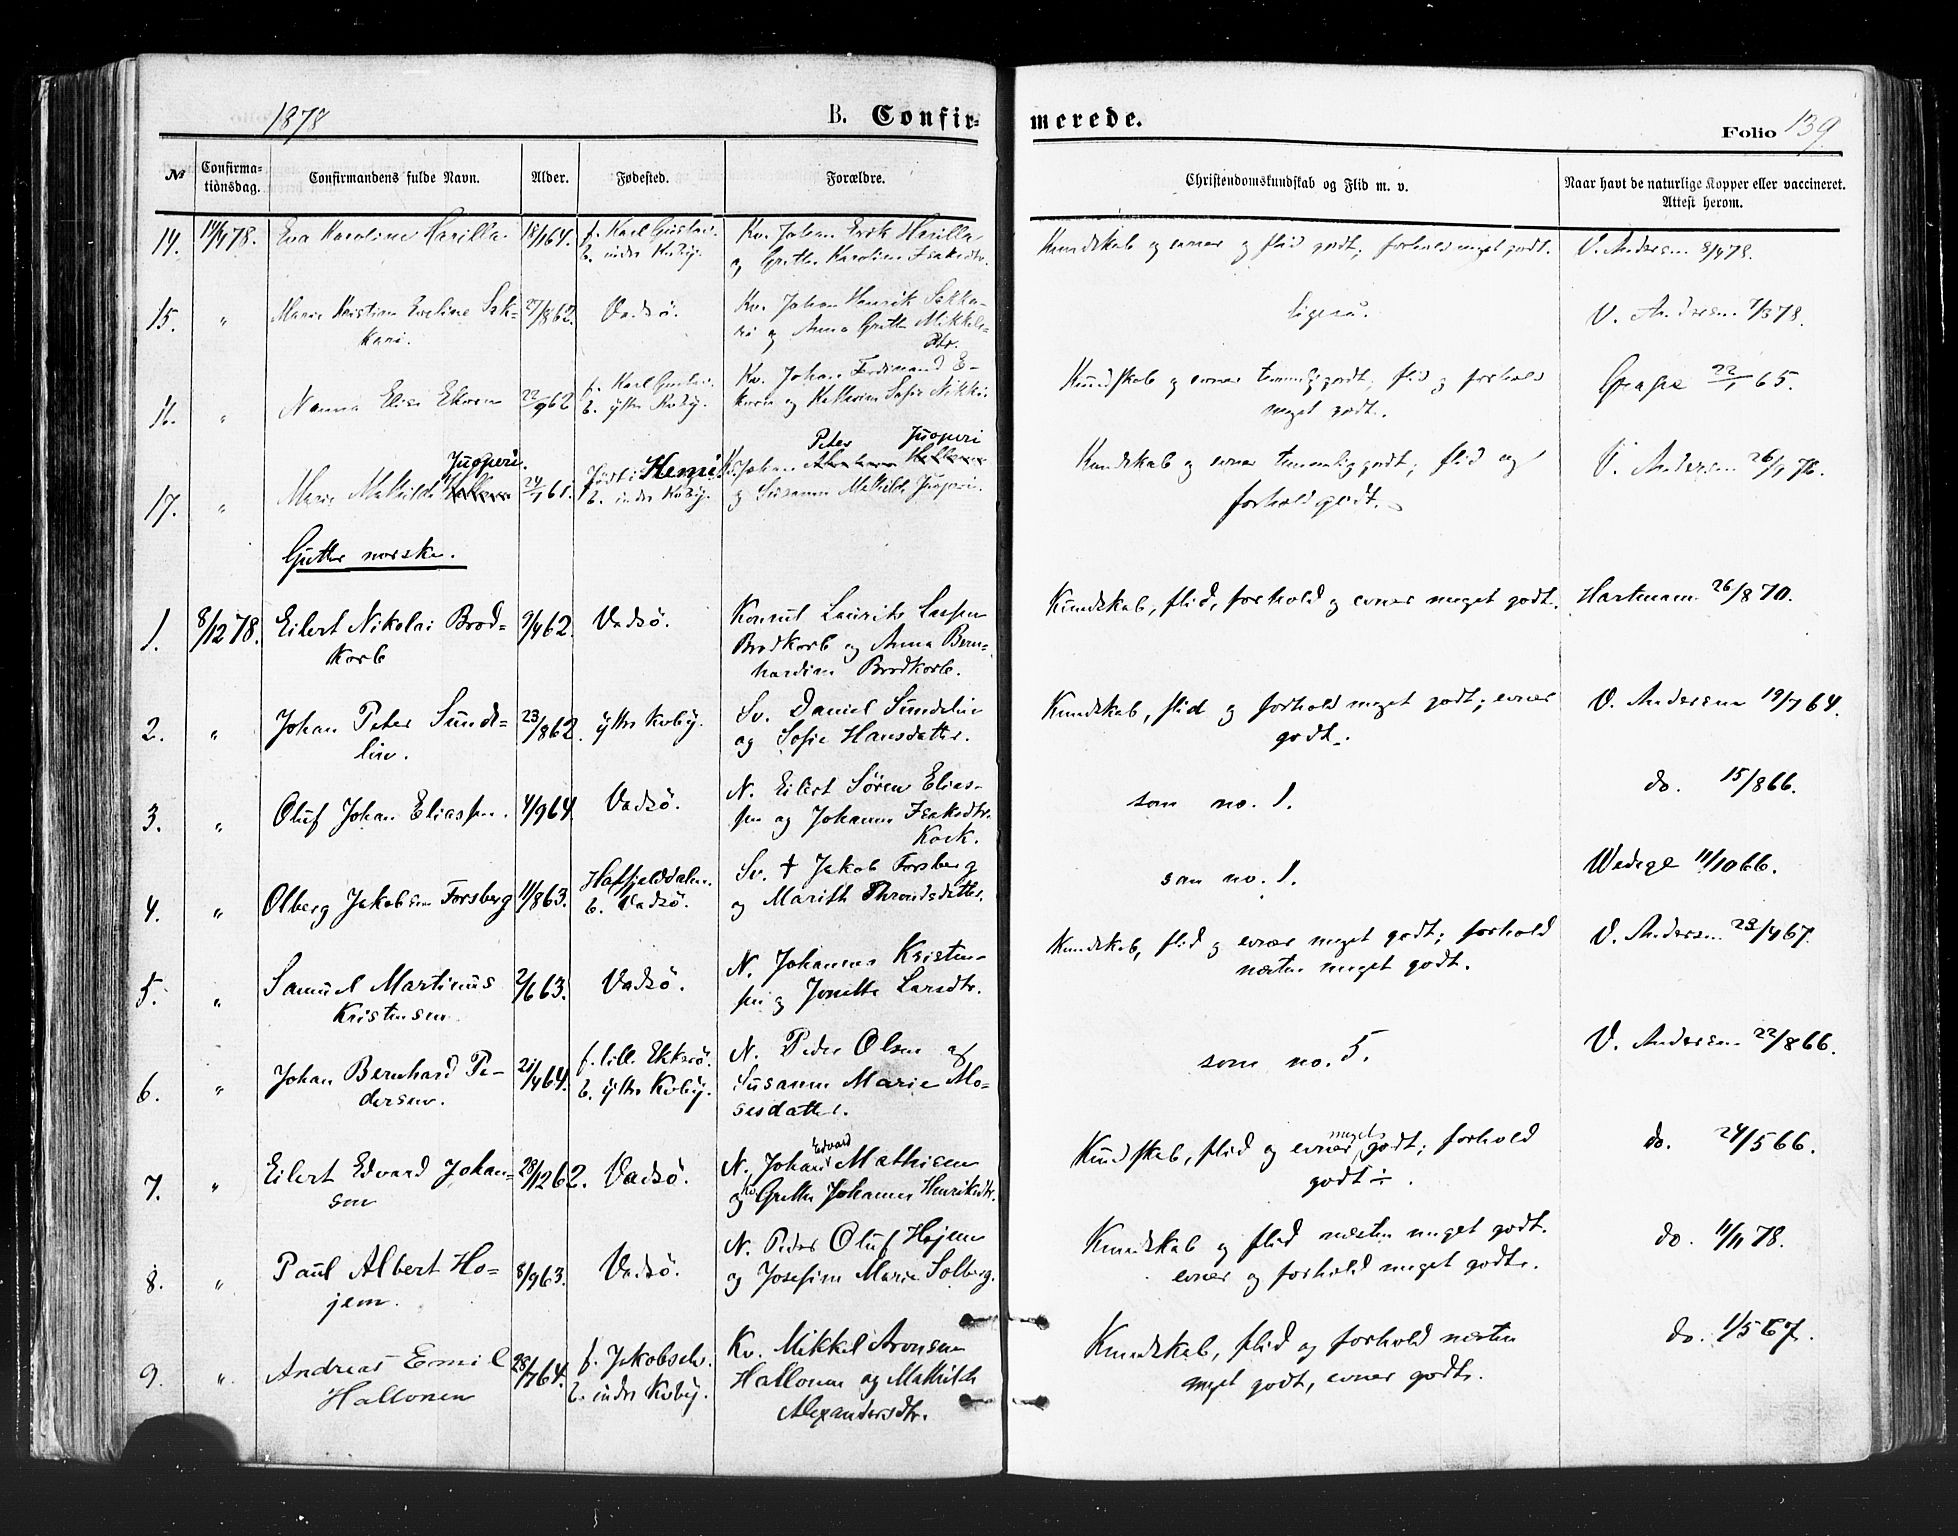 1878
B. Confirmerede.
Folio 139
№
Confirmationsdag.
Confirmandens fulde Navn.
Alder.
Fødested.
Forældre.
Christendomskundskab og Flid m. v.
Naar havt de naturlige Kopper eller vaccineret.
Attest herom.
14. 14/4 78. Eva Karoline Harilla 18/1 64. f. Karl Gustav. Kv. Johan Erik Harilla Kundskab og evner og flid godt; forhold meget godt. V. Andersen 8/4 78.
b. indre Kvby. og Grethe Karoline Isaksdtr.
15. " Marie Kristine Eveline Sak- 27/8 62. Vadsö. Kv. Johan Henrik Sakka- ligeså. V. Andersen 7/3 78.
kari. ri og Anna Grethe Mikkels-
dtr.
16. " Nanna Elise Ekoren 22/9 62 f. Karl Gustav. Kv. Johan Ferdinand E- Kundskab og evner temmelig godt, flid og forhold Grape 22/1 65.
b. ytre Kvby. og Katharina Sofie meget godt.
Juoperi. Peter Juoperi
17. " Marie Mathilde 24/1 61. Født i Kemi Johan Kundskab og evner temmelig godt; flid og V. Andersen 26/1 76.
b. indre Kvby. og Susanna Mathilde Juoperi. forhold godt.
Gutter norske.
1. 8/12 78. Eilert Nikolai Brod- 9/4 62. Vadsö. Konsul Laurits Kundskab, flid, forhold og evner meget godt. Hartmann 26/8 70.
korb Brodkorb og Anna Bern-
hardine Brodkorb.
2. " Johan Peter Sunde- 23/8 62. ytre Kvby. Sv. Daniel Sundelin Kundskab, flid og forhold meget godt; evner V. Andersen 19/7 64.
lin. og Sofie Hansdatter. godt.
3. " Oluf Johan Eliassen. 4/9 64. Vadsö. N. Eilert Sören Elias- som no. 1. do. 15/8 66.
sen og Johanne Isaksdtr.
Kock.
4. " Olberg Jakobsen Forsberg 11/8 63. Hatfjelddalen. Sv. † Jakob Forsberg som no. 1. Wedege 11/10 66.
b. Vadsö. og Marith Throndsdatter.
5. " Samuel Martinus 2/6 63. Vadsö. N. Johannes Kristen- Kundskab, flid og evner meget godt; forhold V. Andersen 23/4 67.
Kristensen sen og Jonetta Larsdtr. næsten meget godt.
6. " Johan Bernhard Pe- 21/4 64. f. lille Ekkerö. N. Peder Olsen og som no. 5. V. Andersen 22/8 66.
dersen. b. ytre Kvby. Susanne Marie Mo-
sesdatter.
7. " Eilert Edvard Johan- 28/12 62. Vadsö. N. Johan Edvard Mathisen Kundskab, flid og evner meget godt; forhold do. 24/5 66.
sen og Kv. Grethe Johanne Henriksdtr. godt ÷.
8. " Paul Albert Ho- 8/9 63. Vadsö. N. Peder Oluf Hojem Kundskab og flid næsten meget godt. do. 11/11 78.
jem. og Josefine Marie Solberg. evner og forhold meget godt.
9. " Andreas Emil 28/7 64. f. Jakobselv. Kv. Mikkel Aronsen Kundskab, flid og forhold næsten do. 1/5 67.
Hallonen b. indre Kvby. Hallonen og Mathilde meget godt, evner godt.
Alexandersdtr.